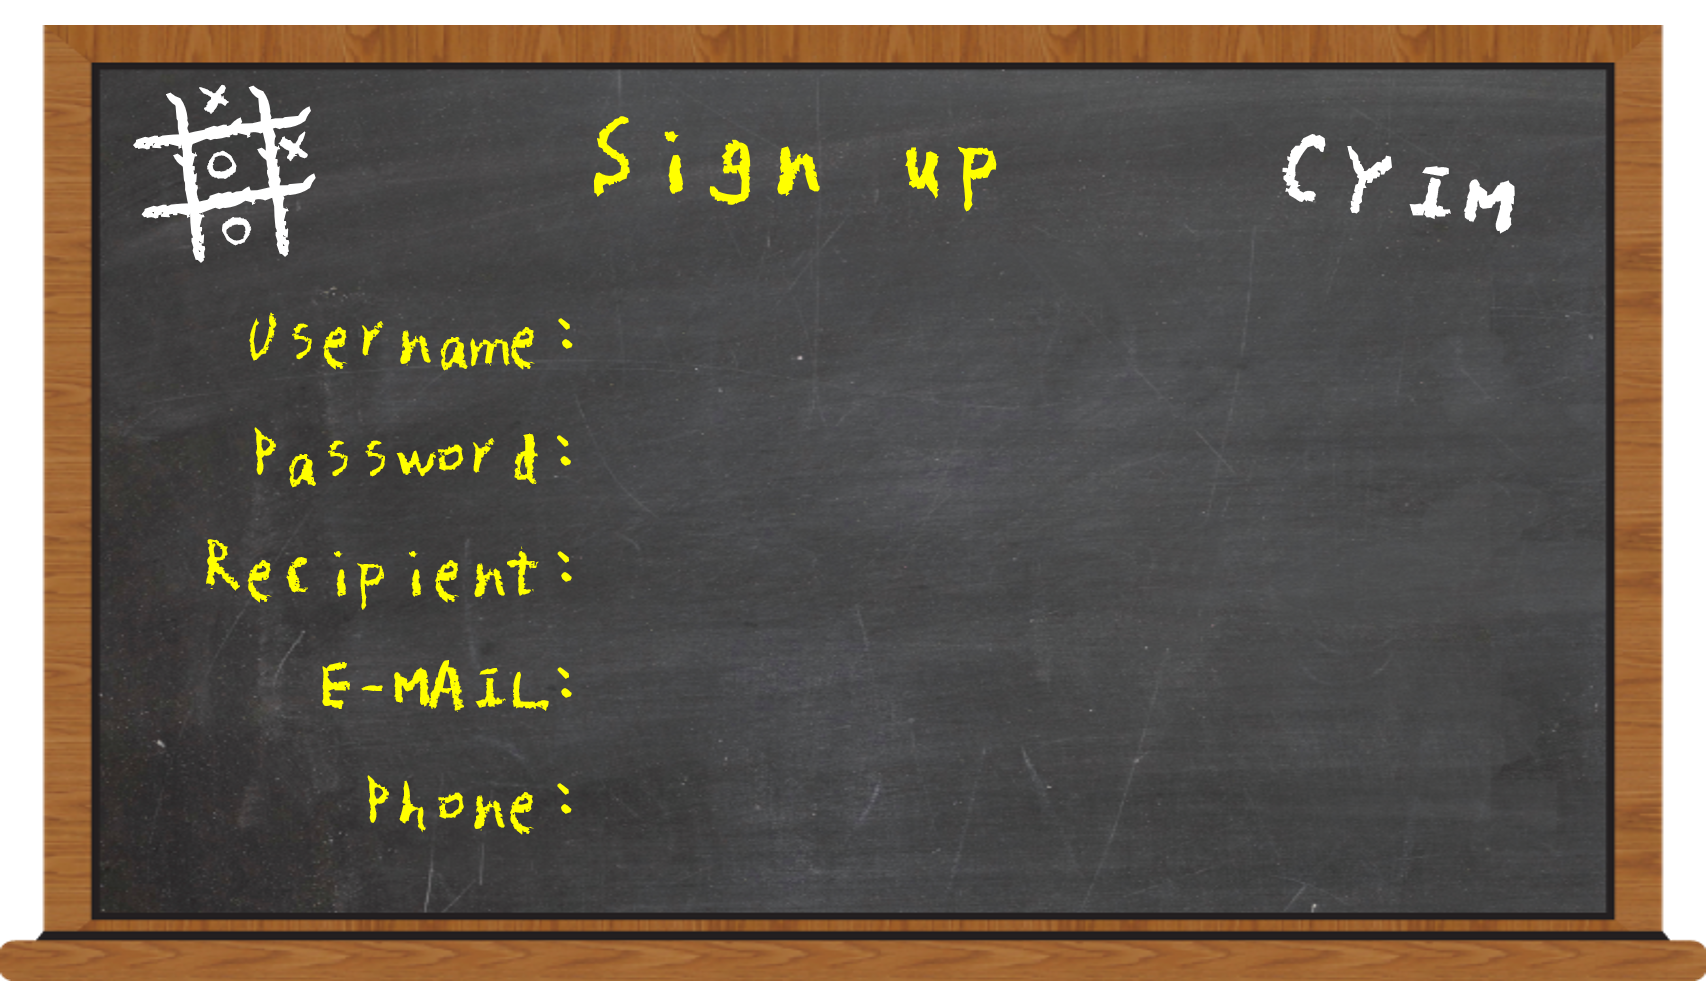 Sign up
CYIM
Username:
Password:
Recipient:
E-MAIL:
Phone: